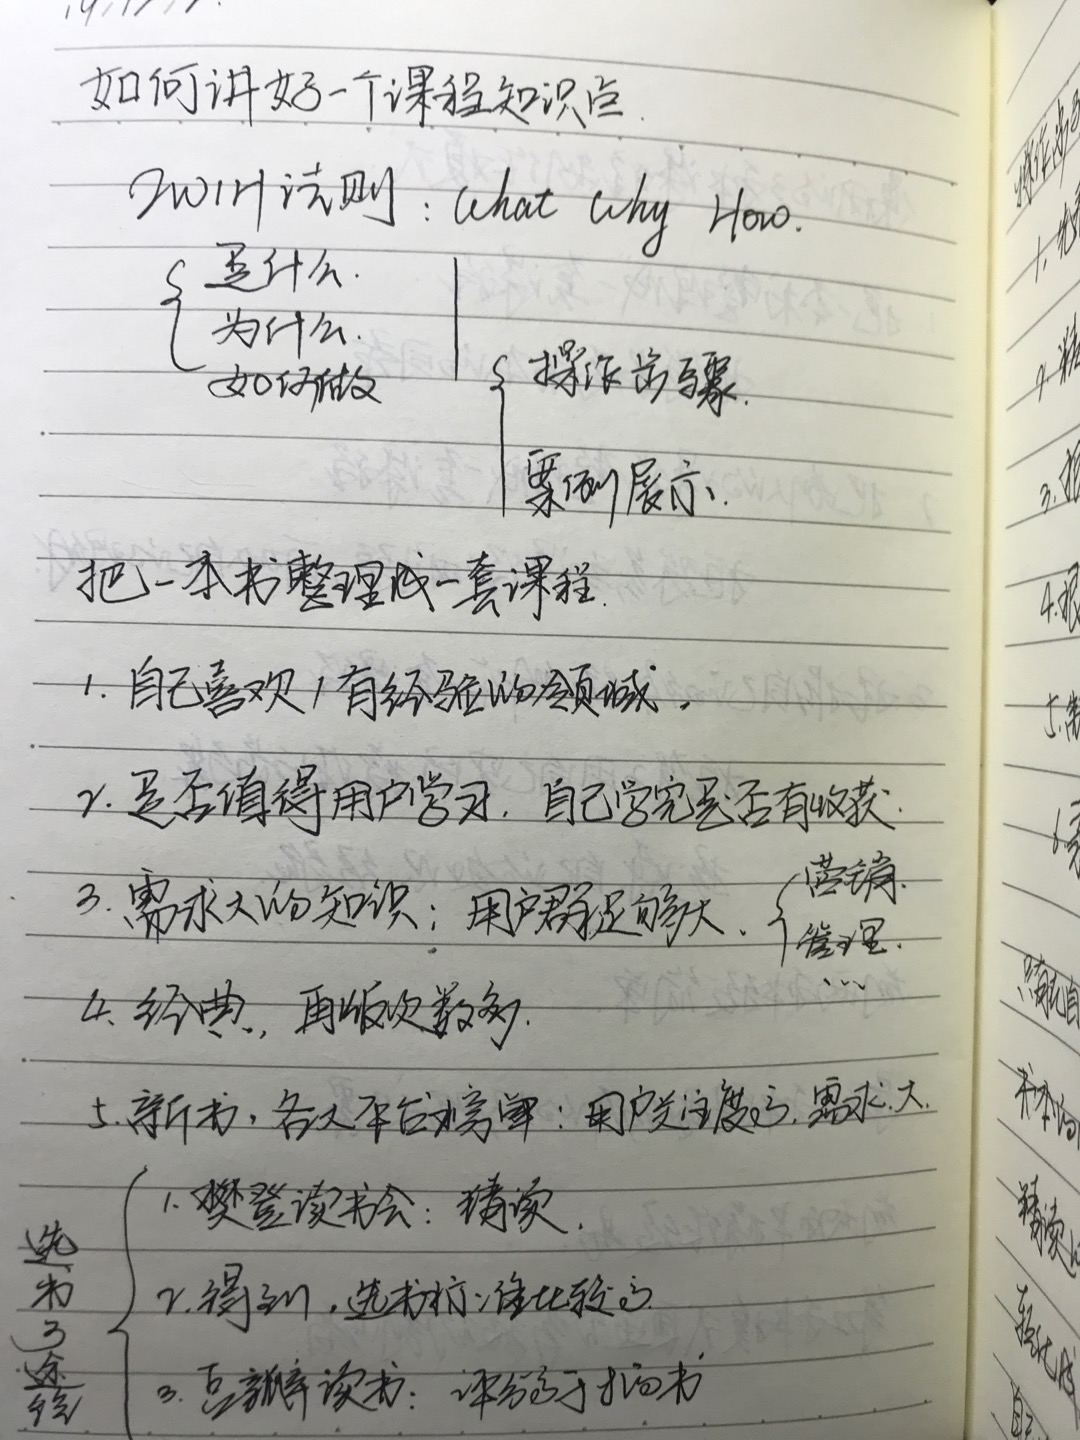 如何讲好一个课程知识点.
2W1H法则: What Why How.
是什么.
为什么.
如何做
操作步骤.
案例展示.
把一本书整理成一套课程.
1. 自己喜欢/有经验的领域.
2. 是否值得用户学习. 自己学完是否有收获.
3. 需求大的知识: 用户群足够大.
营销.
管理.
...
4. 经典, 再版次数多.
5. 新书, 各大平台榜单: 用户关注度高, 需求大.
选书的途径
1. 樊登读书会: 精读.
2. 得到, 选书标准比较高
3. 豆瓣读书: 评分高于 的书
1.
2.
3.
4.
5.
精读